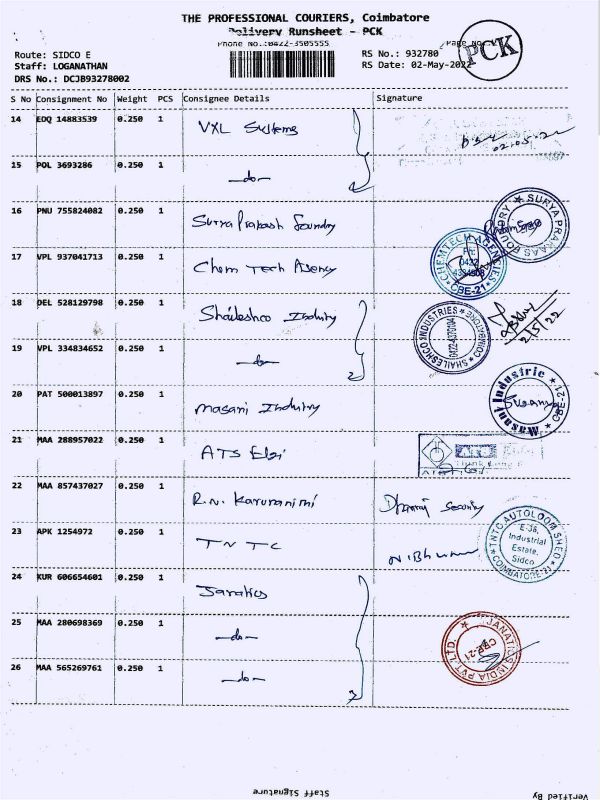 THE PROFESSIONAL COURIERS, Coimbatore
Delivery Runsheet - PCK
Phone No.:0422-3505555
PCK
Route: SIDCO E
RS No.: 932780
Staff: LOGANATHAN
RS Date: 02-May-2022
DRS No.: DCJB93278002
S No Consignment No Weight PCS Consignee Details Signature
14 EDQ 14883539 0.250 1 VXL Systems
02.05.22
15 POL 3693286 0.250 1 -do-
16 PNU 755824082 0.250 1 Surya Prakash Foundry
SURYA PRAKAAS FOUNDRY
17 VPL 937041713 0.250 1 Chem Tech Agency
CHEMTECH AGENCIES
Ph:
0432
CBE-21
18 DEL 528129798 0.250 1 Shaileshco Industry
SHAILESHCO INDUSTRIES
COIMBATORE
2/5/22
19 VPL 334834652 0.250 1 -do-
20 PAT 500013897 0.250 1 Masani Industry
CBE-21
21 MAA 288957022 0.250 1 ATS Elgi
22 MAA 857437027 0.250 1 R.N. Karunanithi
Security
23 APK 1254972 0.250 1 TNTC
TNTC AUTOLOOM SHED
E-38,
Industrial
Estate,
Sidco
COIMBATORE-21
24 KUR 606654601 0.250 1 Janatics
25 MAA 280698369 0.250 1 -do-
JANATICS INDIA PVT. LTD.
CBE-21
26 MAA 565269761 0.250 1 -do-
Staff Signature
Verified By